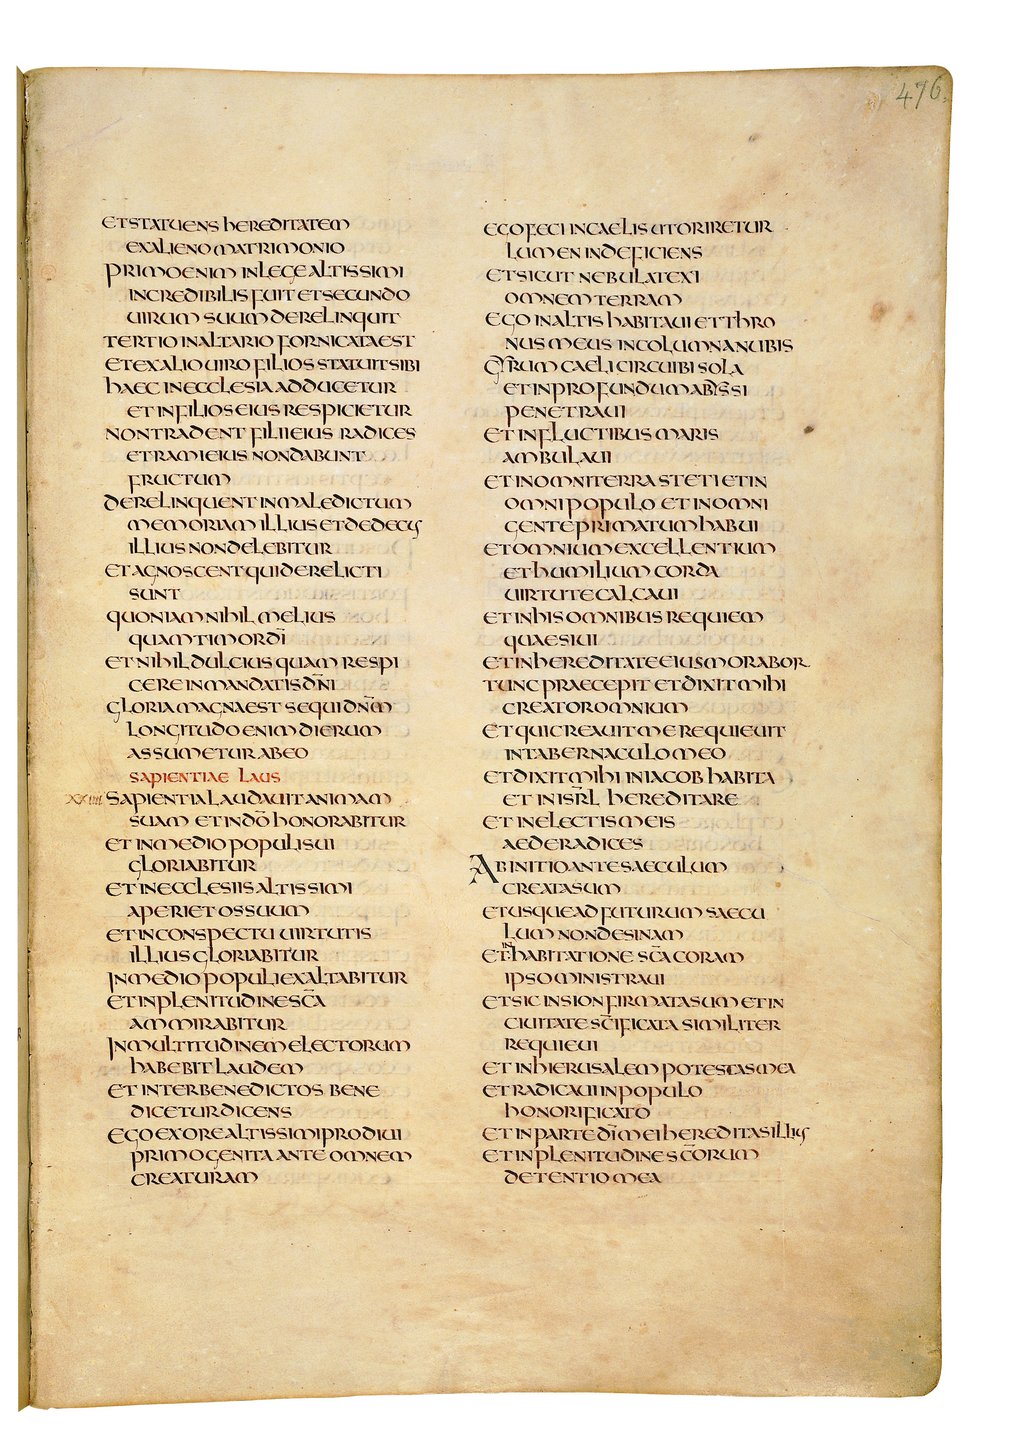 476.
ETSTATUENS HEREDITATEM
EXALIENO MATRIMONIO
PRIMO ENIM IN LEGE ALTISSIMI
INCREDIBILIS FUIT ET SECUNDO
UIRUM SUUM DERELINQUIT
TERTIO IN ALTARIO FORNICATA EST
ET EX ALIO UIRO FILIOS STATUIT SIBI
HAEC IN ECCLESIA ADDUCETUR
ET IN FILIOS EIUS RESPICIETUR
NON TRADENT FILII EIUS RADICES
ET RAMI EIUS NON DABUNT
FRUCTUM
DERELINQUENT IN MALEDICTUM
MEMORIAM ILLIUS ET DEDECUS
ILLIUS NON DELEBITUR
ET AGNOSCENT QUI DERELICTI
SUNT
QUONIAM NIHIL MELIUS
QUAM TIMOR DĪ
ET NIHIL DULCIUS QUAM RESPI
CERE IN MANDATIS DN̄I
GLORIA MAGNA EST SEQUI DN̄M
LONGITUDO ENIM DIERUM
ASSUMETUR AB EO
SAPIENTIAE LAUS
XXIIII SAPIENTIA LAUDAUIT ANIMAM
SUAM ET IN DŌ HONORABITUR
ET IN MEDIO POPULI SUI
GLORIABITUR
ET IN ECCLESIIS ALTISSIMI
APERIET OS SUUM
ET IN CONSPECTU UIRTUTIS
ILLIUS GLORIABITUR
IN MEDIO POPULI EXALTABITUR
ET IN PLENITUDINE SC̄A
AMMIRABITUR
IN MULTITUDINEM ELECTORUM
HABEBIT LAUDEM
ET INTER BENEDICTOS BENE
DICETUR DICENS
EGO EX ORE ALTISSIMI PRODIUI
PRIMOGENITA ANTE OMNEM
CREATURAM
EGO FECI IN CAELIS UT ORIRETUR
LUMEN INDEFICIENS
ET SICUT NEBULA TEXI
OMNEM TERRAM
EGO IN ALTIS HABITAUI ET THRO
NUS MEUS IN COLUMNA NUBIS
GYRUM CAELI CIRCUIBI SOLA
ET IN PROFUNDUM ABYSSI
PENETRAUI
ET IN FLUCTIBUS MARIS
AMBULAUI
ET IN OMNI TERRA STETI ET IN
OMNI POPULO ET IN OMNI
GENTE PRIMATUM HABUI
ET OMNIUM EXCELLENTIUM
ET HUMILIUM CORDA
UIRTUTE CALCAUI
ET IN HIS OMNIBUS REQUIEM
QUAESIUI
ET IN HEREDITATE EIUS MORABOR
TUNC PRAECEPIT ET DIXIT MIHI
CREATOR OMNIUM
ET QUI CREAUIT ME REQUIEUIT
IN TABERNACULO MEO
ET DIXIT MIHI IN IACOB HABITA
ET IN ISRL̄ HEREDITARE
ET IN ELECTIS MEIS
AEDE RADICES
AB INITIO ANTE SAECULUM
CREATA SUM
ET USQUE AD FUTURUM SAECU
LUM NON DESINAM
ET IN HABITATIONE SC̄A CORAM
IPSO MINISTRAUI
ET SIC IN SION FIRMATA SUM ET IN
CIUITATE SC̄IFICATA SIMILITER
REQUIEUI
ET IN HIERUSALEM POTESTAS MEA
ET RADICAUI IN POPULO
HONORIFICATO
ET IN PARTE DĪ MEI HEREDITAS ILLIUS
ET IN PLENITUDINE SC̄ORUM
DETENTIO MEA